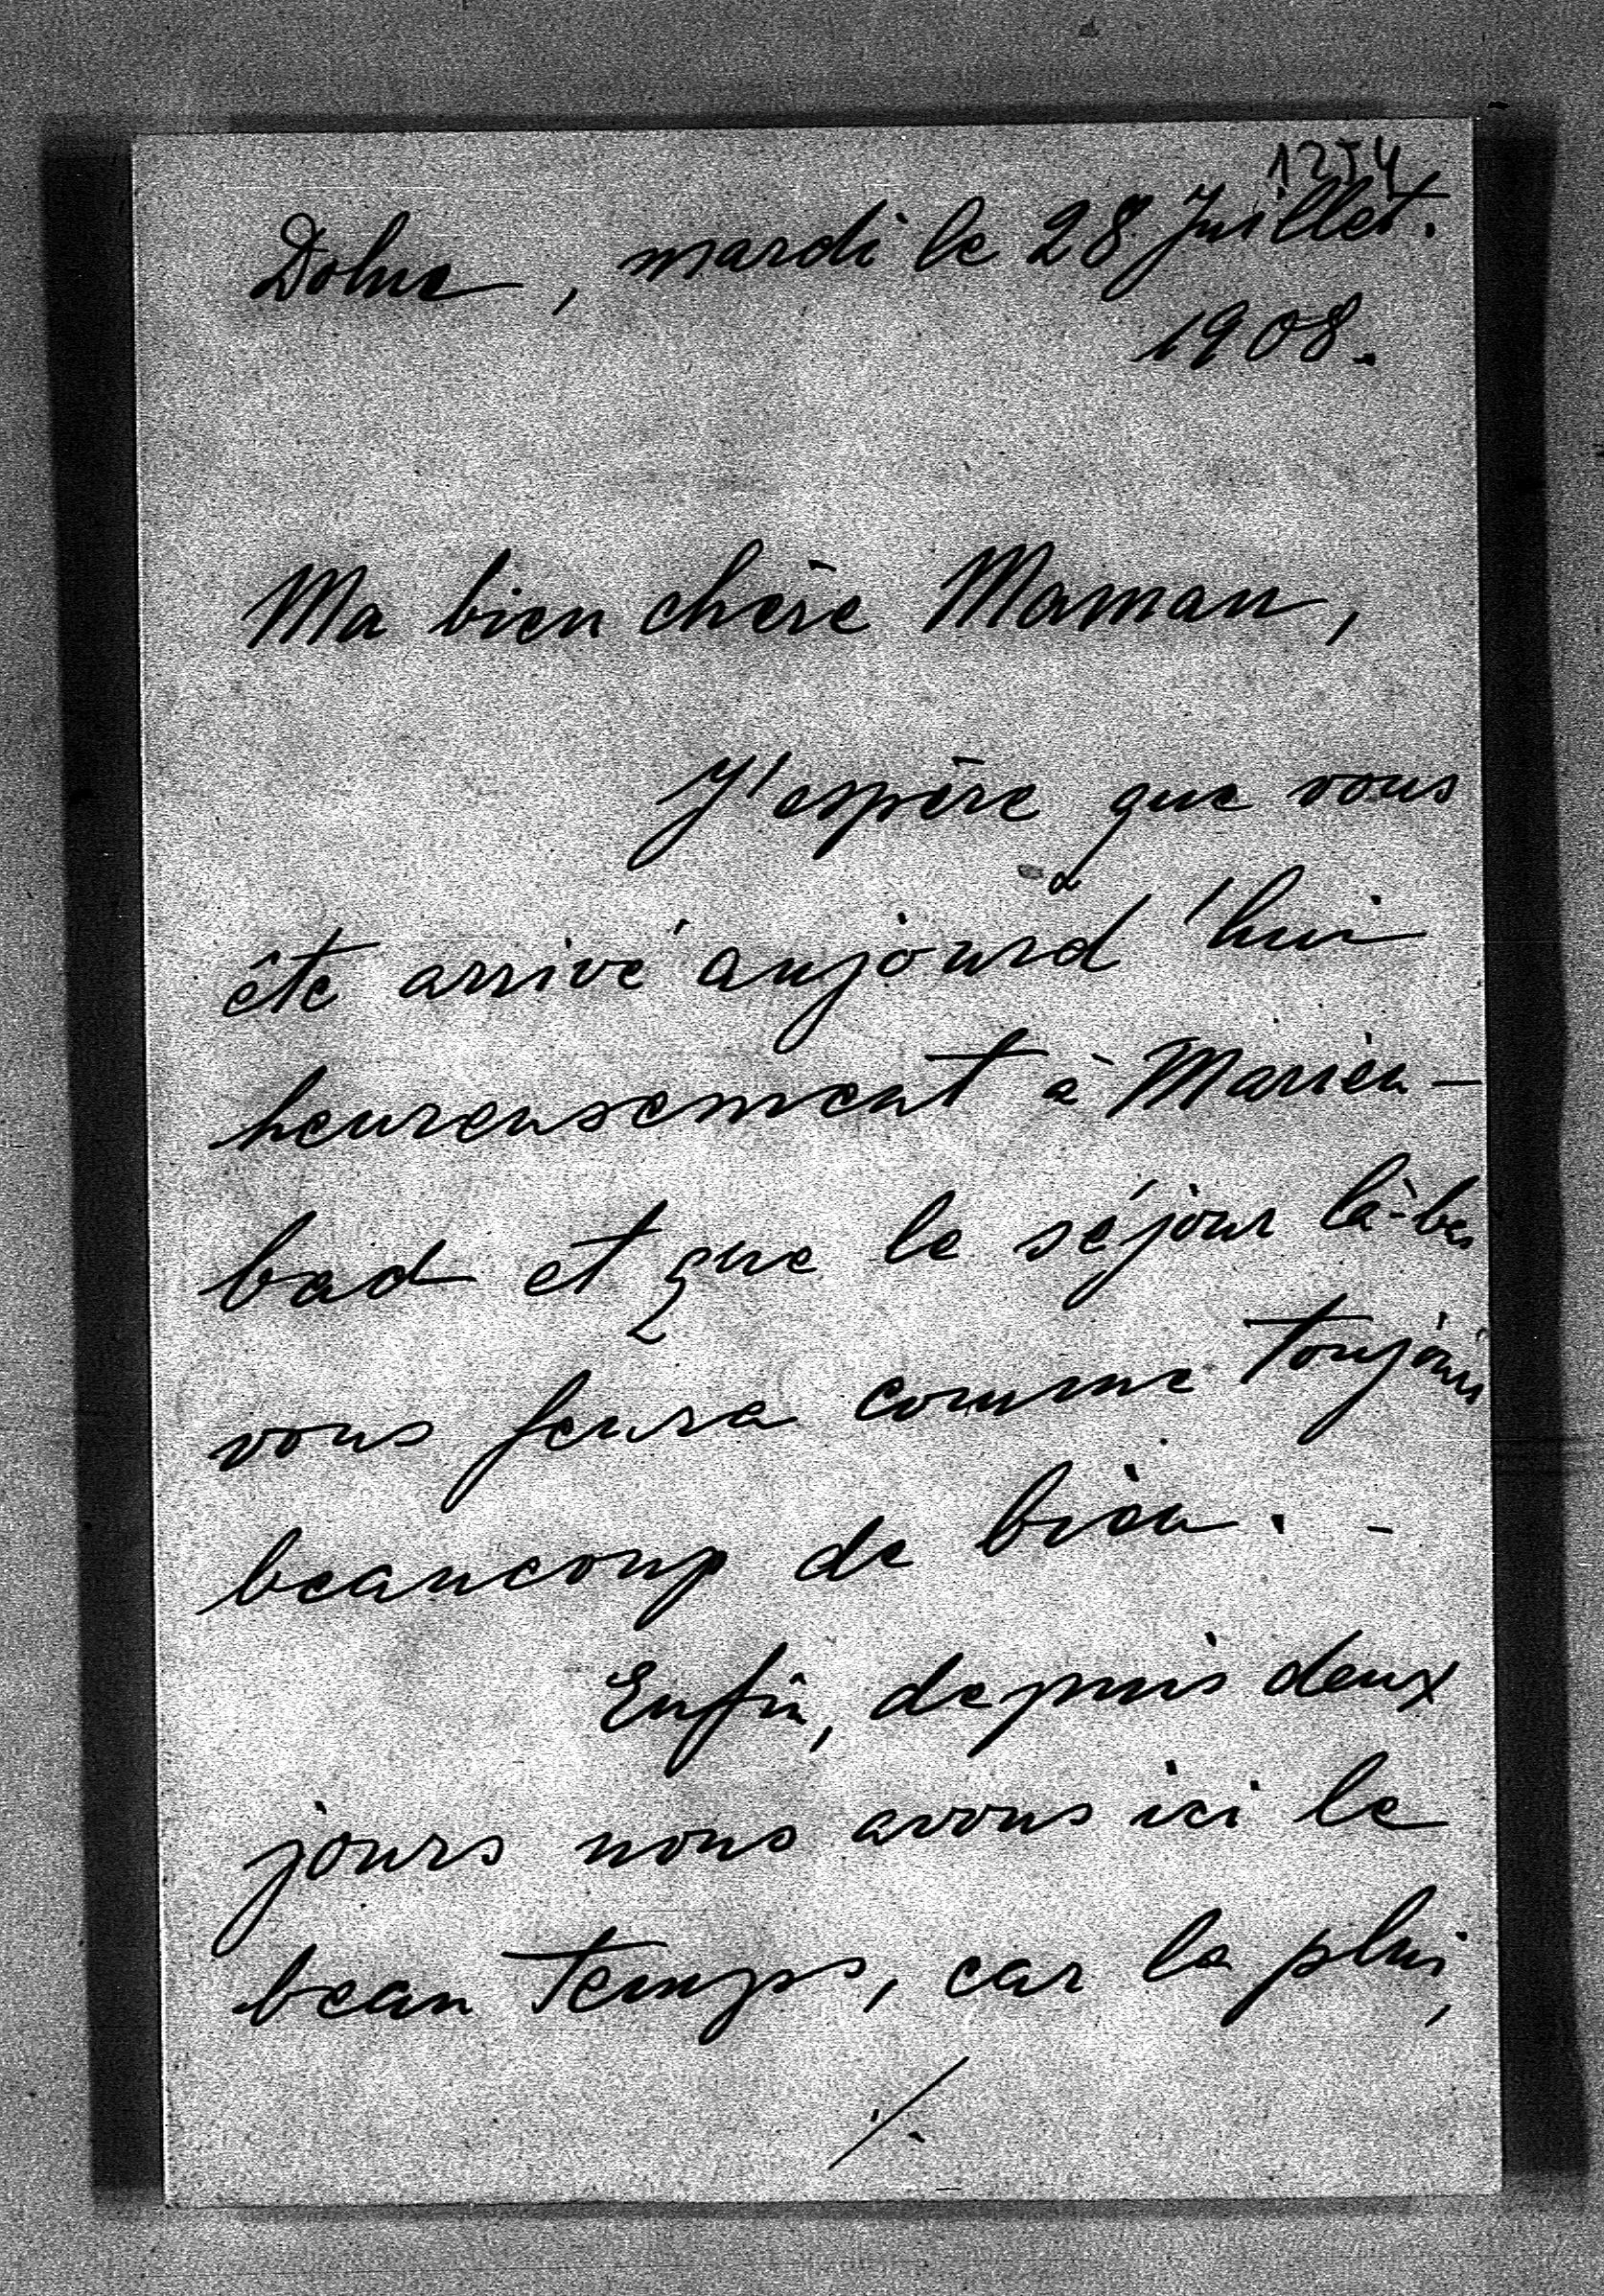 1254
Dolna, mardi le 28 Juillet.
1908.
Ma bien chère Maman,
J'espère que vous
ête arrivé aujourd'hui
heureusement à Marien-
bad et que le séjour là-bas
vous fera comme toujours
beaucoup de bien. -
Enfin, depuis deux
jours nous avons ici le
beau temps, car la plui,
./.